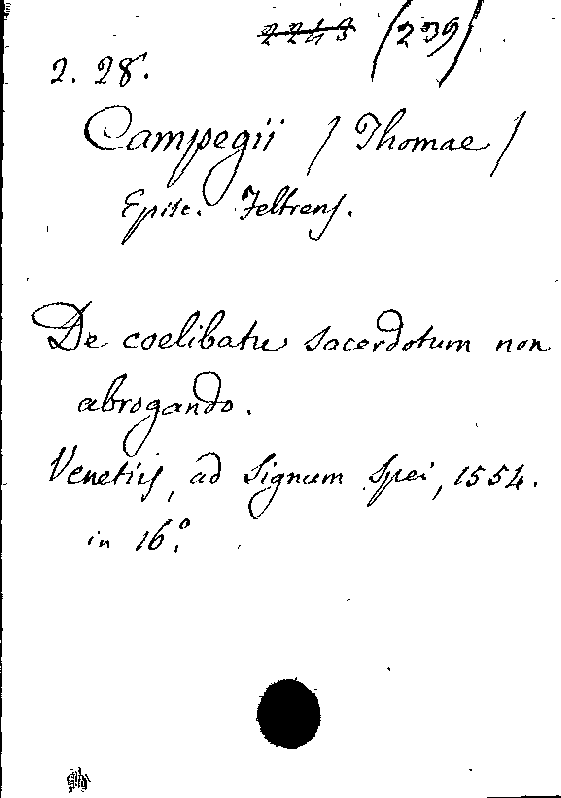 2243 (239)
2. 28.
Campegii / Thomae /
Episc. Feltrens.
De coelibatu sacerdotum non
abrogando.
Venetiis, ad Signum Spei, 1554.
in 16.º